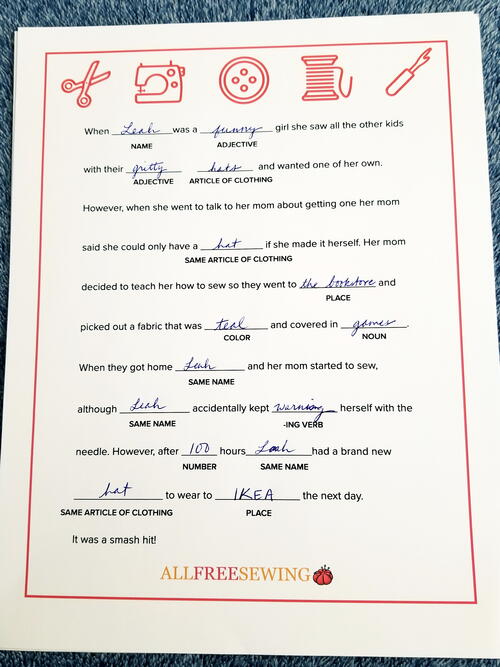 When Leah was a funny girl she saw all the other kids
NAME ADJECTIVE
with their gritty hats and wanted one of her own.
ADJECTIVE ARTICLE OF CLOTHING
However, when she went to talk to her mom about getting one her mom
said she could only have a hat if she made it herself. Her mom
SAME ARTICLE OF CLOTHING
decided to teach her how to sew so they went to the bookstore and
PLACE
picked out a fabric that was teal and covered in games.
COLOR NOUN
When they got home Leah and her mom started to sew,
SAME NAME
although Leah accidentally kept warning herself with the
SAME NAME -ING VERB
needle. However, after 100 hours Leah had a brand new
NUMBER SAME NAME
hat to wear to IKEA the next day.
SAME ARTICLE OF CLOTHING PLACE
It was a smash hit!
ALLFREESEWING